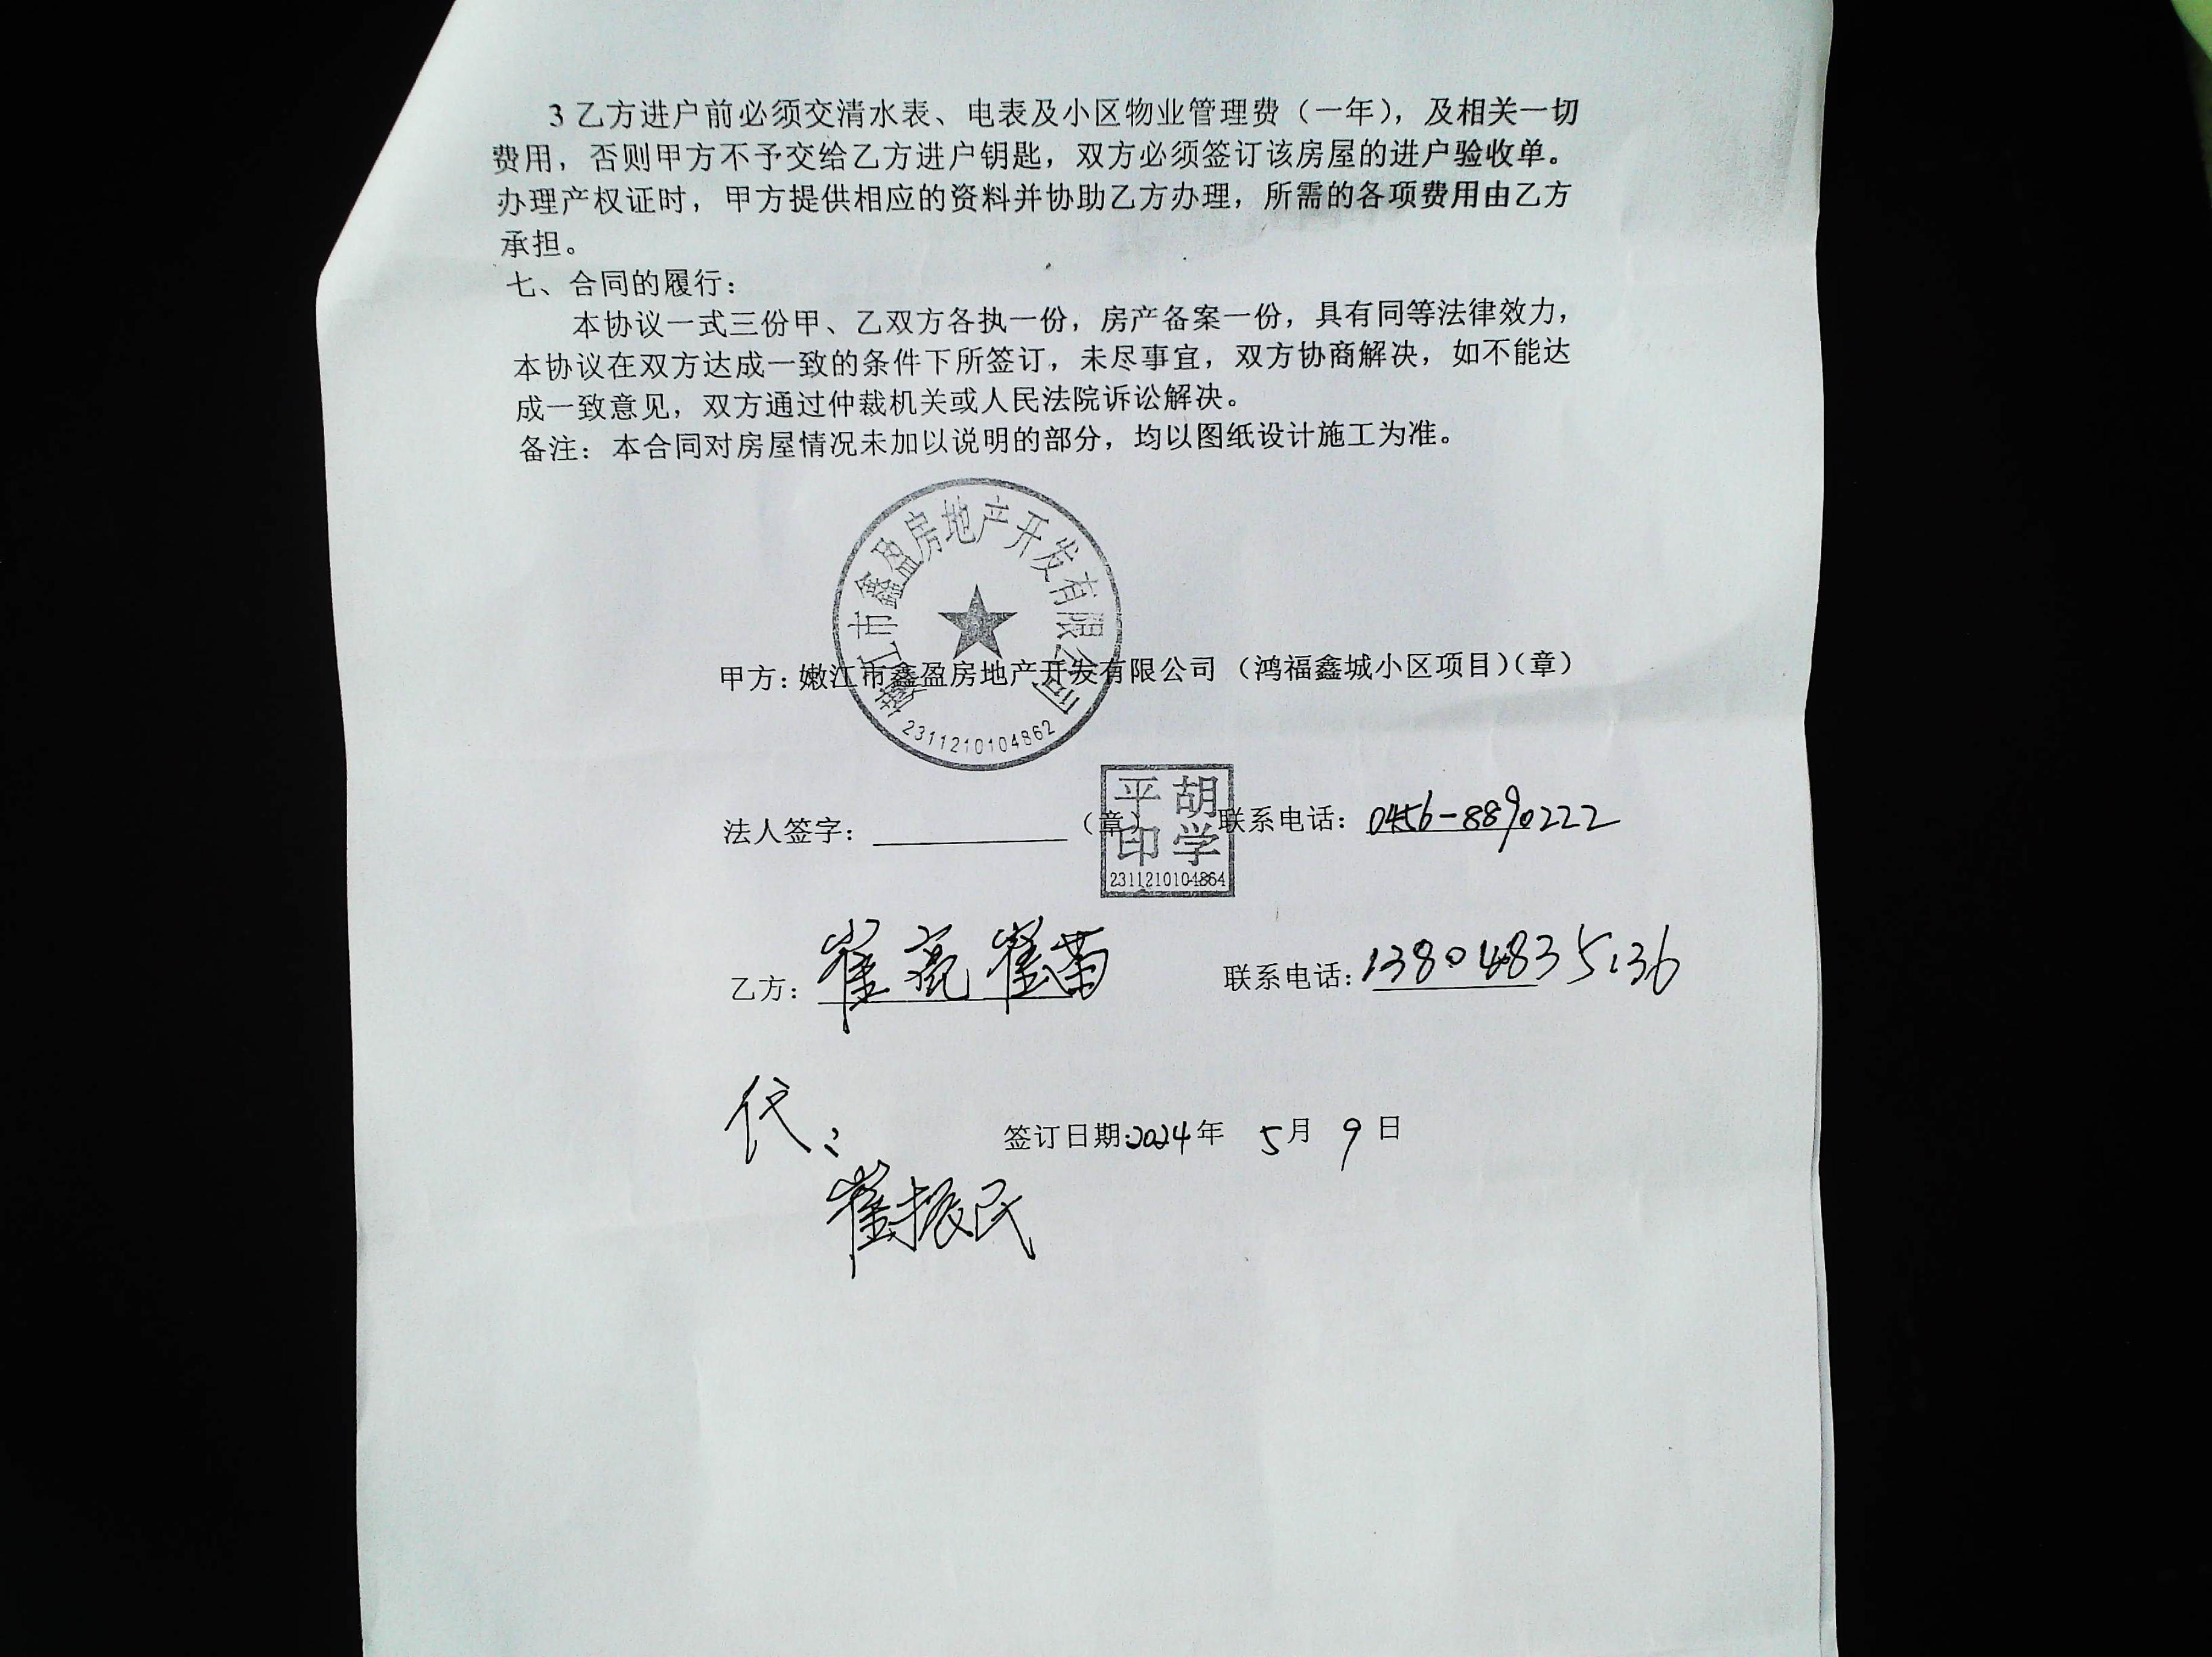 3 乙方进户前必须交清水表、电表及小区物业管理费（一年），及相关一切
费用，否则甲方不予交给乙方进户钥匙，双方必须签订该房屋的进户验收单。
办理产权证时，甲方提供相应的资料并协助乙方办理，所需的各项费用由乙方
承担。
七、合同的履行：
本协议一式三份甲、乙双方各执一份，房产备案一份，具有同等法律效力，
本协议在双方达成一致的条件下所签订，未尽事宜，双方协商解决，如不能达
成一致意见，双方通过仲裁机关或人民法院诉讼解决。
备注：本合同对房屋情况未加以说明的部分，均以图纸设计施工为准。
嫩江市鑫盈房地产开发有限公司
甲方：嫩江市鑫盈房地产开发有限公司（鸿福鑫城小区项目）（章）
2311210104862
法人签字：（章）联系电话：0456-8890222
胡学平印
2311210104864
乙方：崔亮 崔蕾 联系电话：13804835136
代：
签订日期：2024年 5月 9日
崔振民